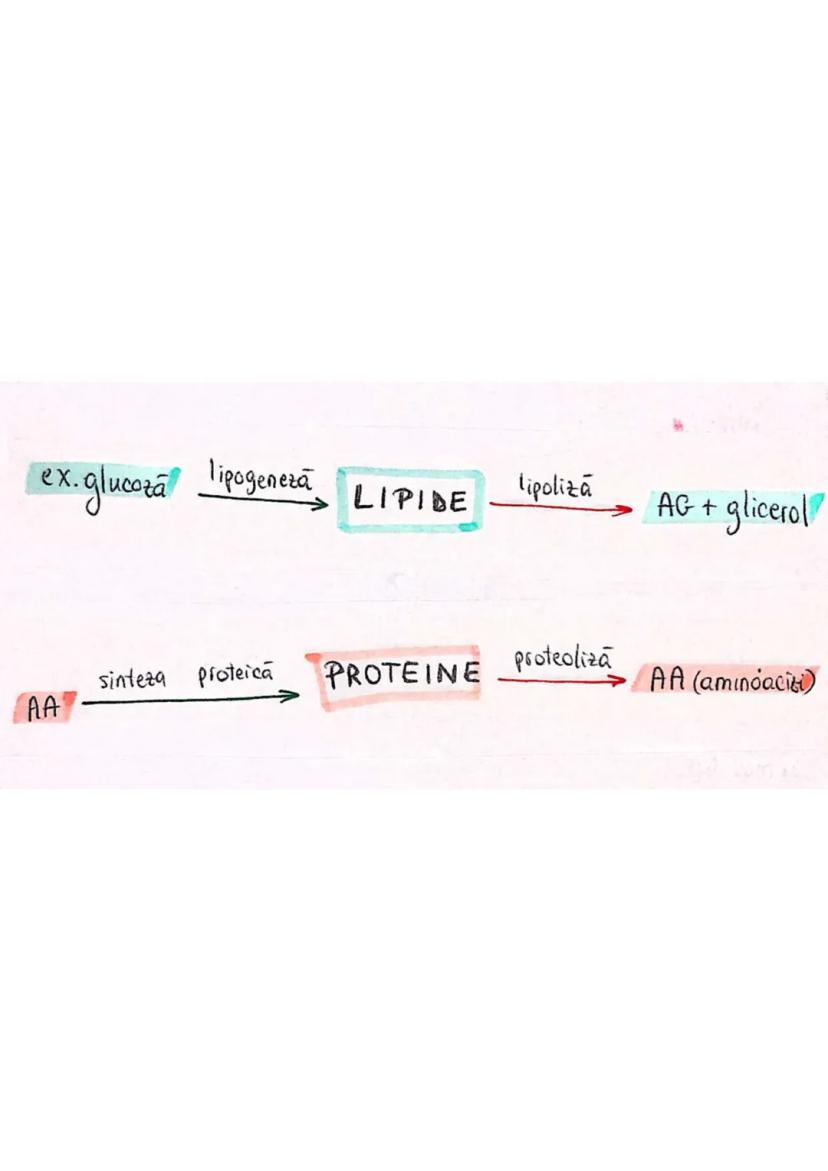 ex. glucoză lipogeneză LIPIDE lipoliză AG + glicerol
AA sinteza proteică PROTEINE proteoliză AA (aminoacizi)